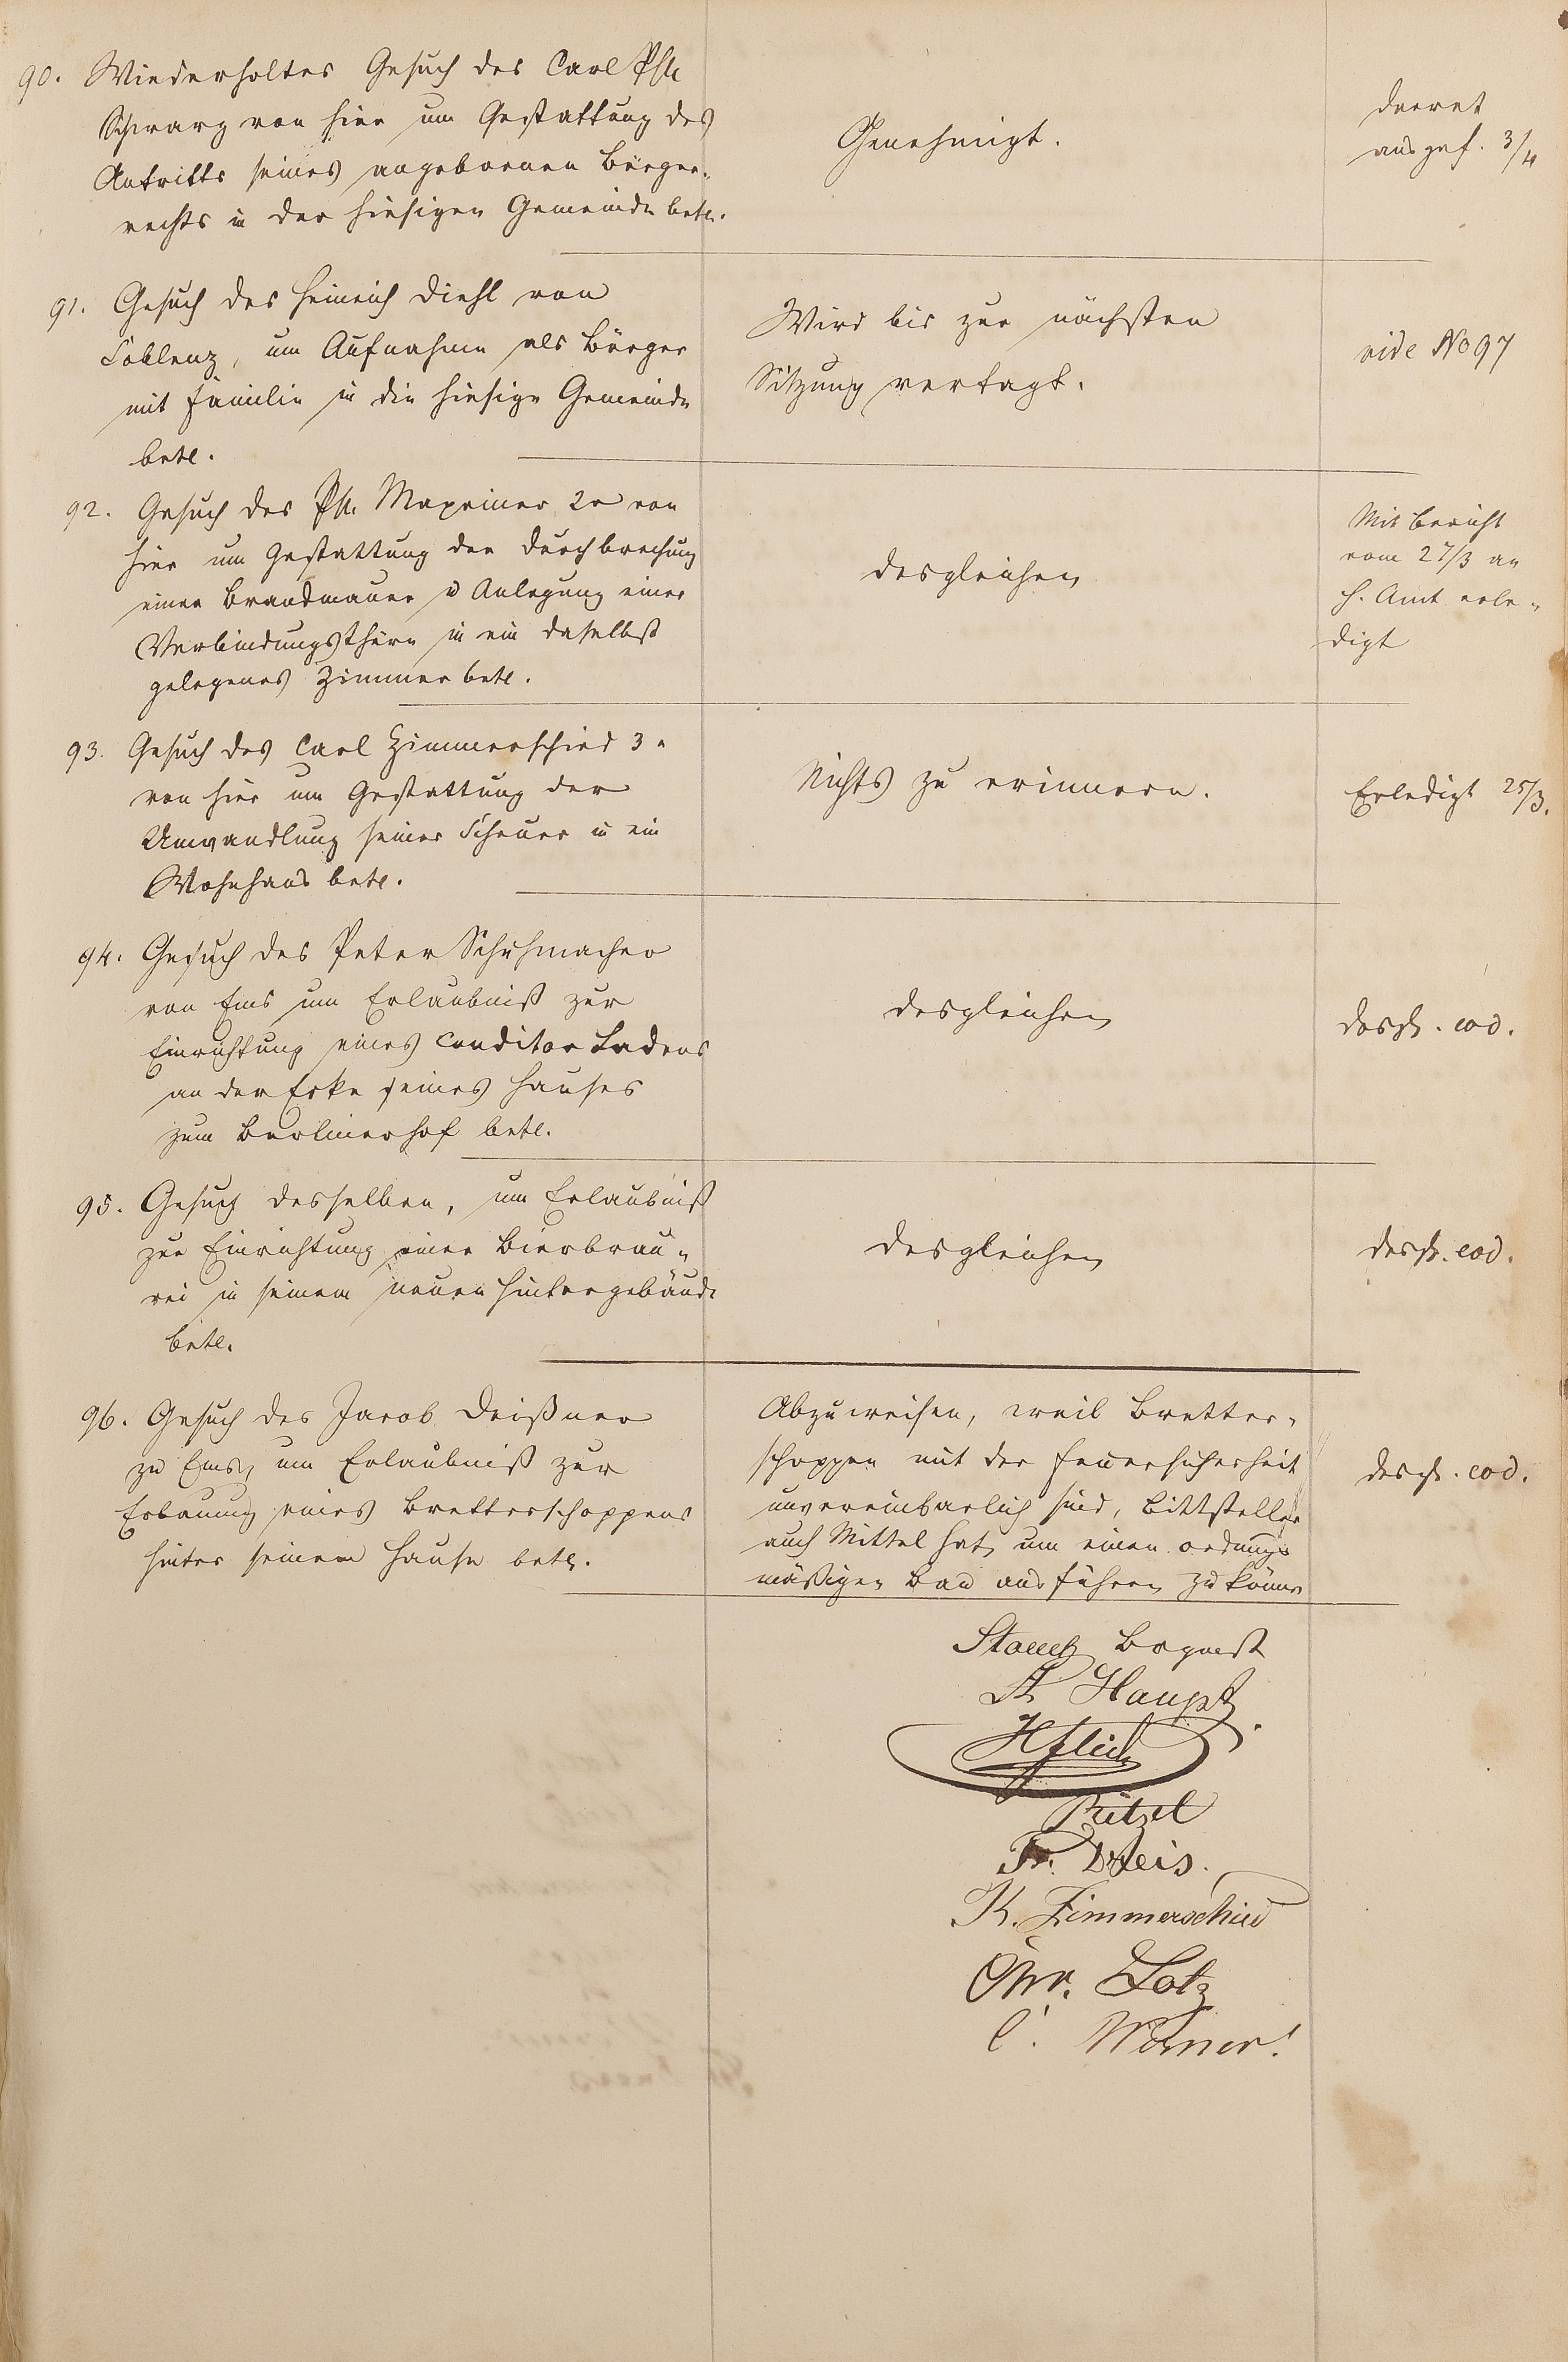 90. Wiederholtes Gesuch des Carl Ph.
Schwarz von hier um Gestattung des
Antritts seines angebornen Bürger-
rechts in der hiesigen Gemeinde betr.
Genehmigt.
Decret
ausgef. 3/4
91. Gesuch des Heinrich Diehl von
Coblenz, um Aufnahme als Bürger
mit Familie in die hiesige Gemeinde
betr.
Wird bis zur nächsten
Sitzung vertagt.
vide No 97
92. Gesuch des Ph. Maxeiner 2r von
hier um Gestattung der Durchbrechung
einer Brandmauer u Anlegung einer
Verbindungsthüre in ein daselbst
gelegenes Zimmer betr.
desgleichen
Mit Bericht
vom 27/3 an
H. Amt erle-
digt
93. Gesuch des Carl Zimmerschied 3r
von hier um Gestattung der
Umwandlung seiner Scheuer in ein
Wohnhaus betr.
Nichts zu erinnern.
Erledigt 25/3.
94. Gesuch des Peter Schuhmacher
von Ems um Erlaubniß zur
Einrichtung eines Conditor Ladens
an der Ecke seines Hauses
zum Berlinerhof betr.
desgleichen
desgl. eod.
95. Gesuch desselben, um Erlaubniß
zur Einrichtung einer Bierbrau-
rei in seinem neuen Hintergebäude
betr.
desgleichen
desgl. eod.
96. Gesuch des Jacob Deißner
zu Ems, um Erlaubniß zur
Erbauung eines Bretterschoppens
hinter seinem Hause betr.
Abzuweisen, weil Bretter-
schoppen mit der Feuersicherheit
unvereinbarlich sind, Bittsteller
auch Mittel hat, um einen ordnungs
mäßigen Bau ausführen zu können
desgl. eod.
Bgmst
Haupt
Pritzel
Fr. Weis.
K. Zimmerschied
Chr. Lotz
C. Werner!